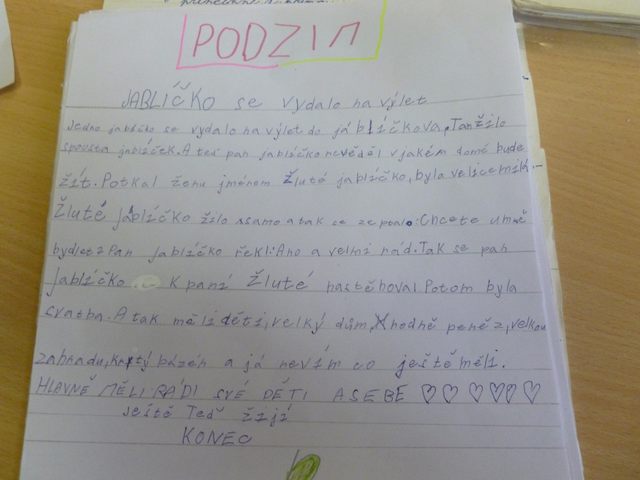 PODZIM
JABLÍČKO se vydalo na výlet
Jedno jablíčko se vydalo na výlet do jáblíčkova. Tam žilo
spousta jablíček. A teď pan jablíčko nevěděl v jakém domě bude
žít. Potkal ženu jménem žluté jablíčko, byla velice milá.
Žluté jablíčko žilo ssamo a tak se zeptalo: Chcete u mně
bydlet? Pan jablíčko řekl: Ano a velmi rád. Tak se pan
jablíčko k paní Žluté nastěhoval Potom byla
svatba. A tak měli děti, velký dům, hodně peněz, velkou
zahradu, krytý bázén a já nevím co ještě měli.
HLAVNĚ MĚLI RÁDI SVÉ DĚTI A SEBE ♡ ♡ ♡ ♡ ♡ ♡
ještě Teď žijí
KONEC